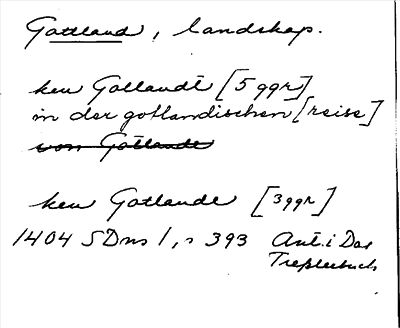 Gottland, landskap.
ken Gotlandt [5 ggr]
in der gotlandischen [reise]
von Gotlande
ken Gotlande [3 ggr]
1404 SDns 1, s 393 Ant. i Das
Treßlerbuch